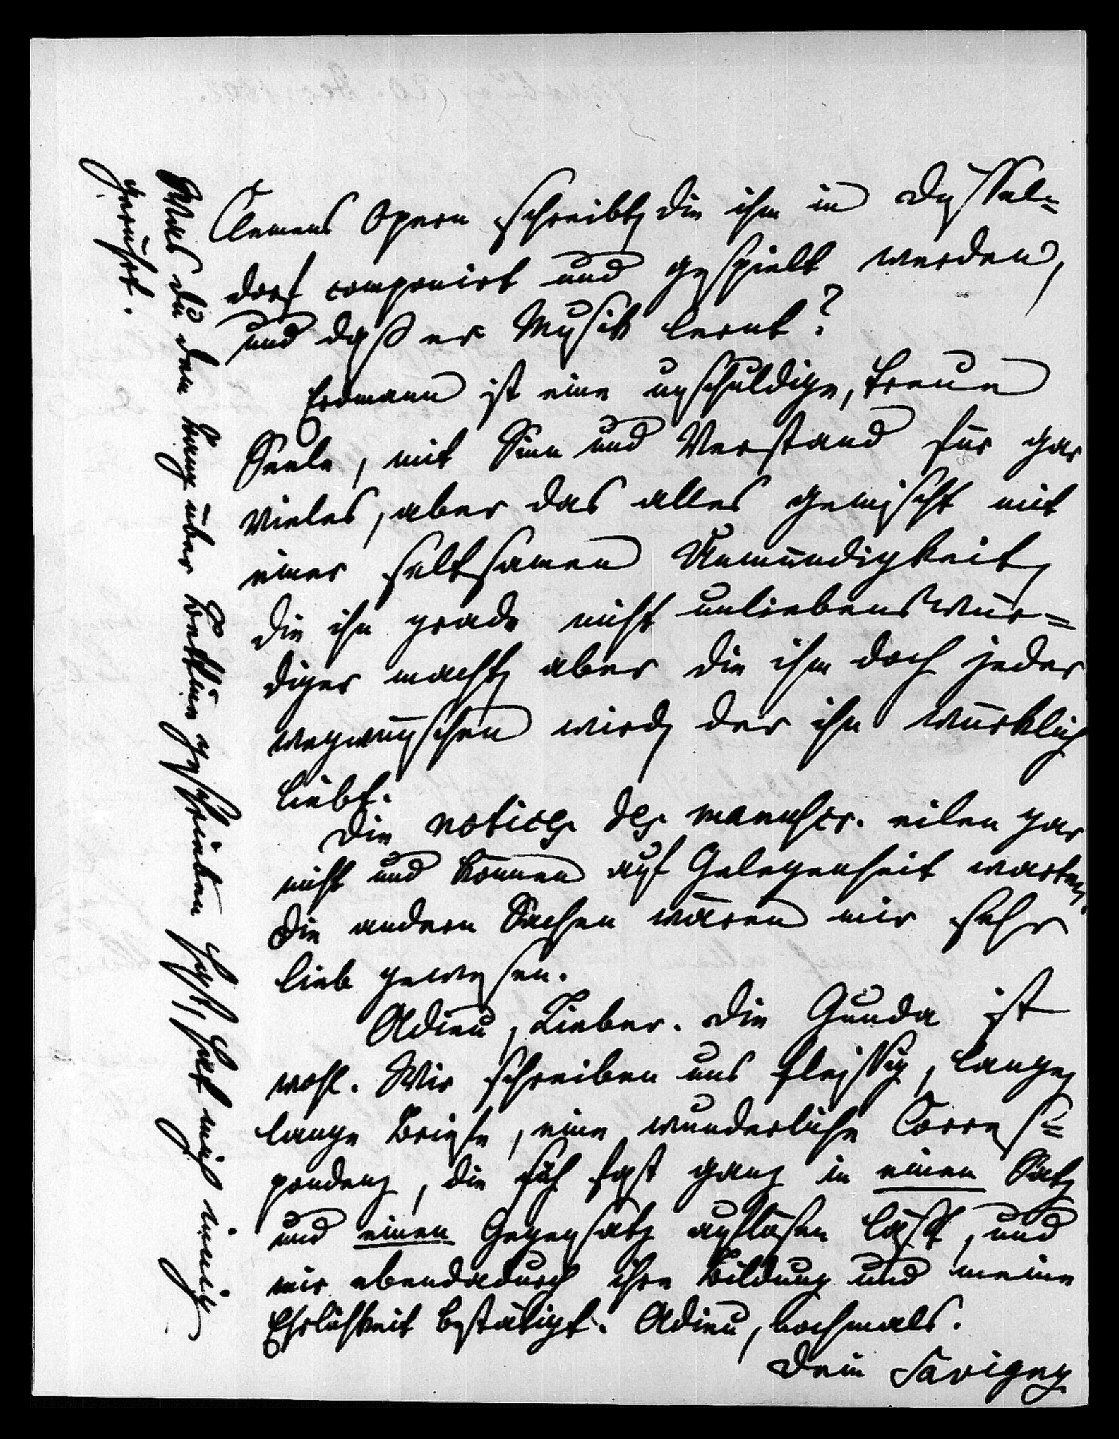 Clemens Opern schreibt, die ihm in Düssel=
dorf componirt und gespielt werden,
und daß er Musik lernt?
Erdmann ist eine unschuldige, treue
Seele, mit Sinn und Verstand für gar
vieles, aber das alles gemischt mit
einer seltsamen Unmündigkeit,
die ihn grade nicht unliebenswür=
diger macht, aber die ihm doch jeder
wegwünschen wird, der ihn würklich
liebt.
Die notices des manuscr. eilen gar
nicht und können auf Gelegenheit warten,
die andern Sachen wären mir sehr
lieb gewesen.
Adieu, Lieber. Die Gunda ist
wohl. Wir schreiben uns fleissig, lange,
lange Briefe, eine wunderliche Corres=
pondenz, die sich fast ganz in einen Satz
und einen Gegensatz auflösen läßt, und
mir ebendadurch ihre Bildung und meine
Ehrlichkeit bestätigt. Adieu, nochmals.
Dein Savigny
Was du dem über Bettine geschrieben hast, hat mich innig
gerührt.